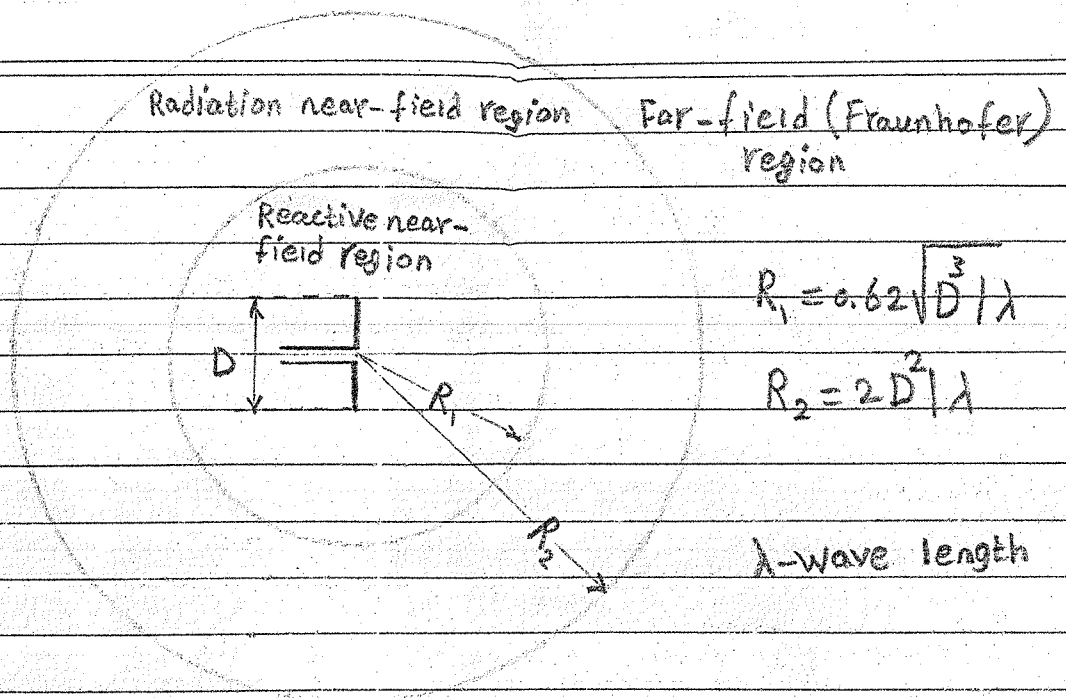 Radiation near-field region
Far-field (Fraunhofer)
region
Reactive near-
field region
R₁ = 0.62√D³/λ
D
R₁
R₂ = 2D²/λ
R₂
λ-wave length